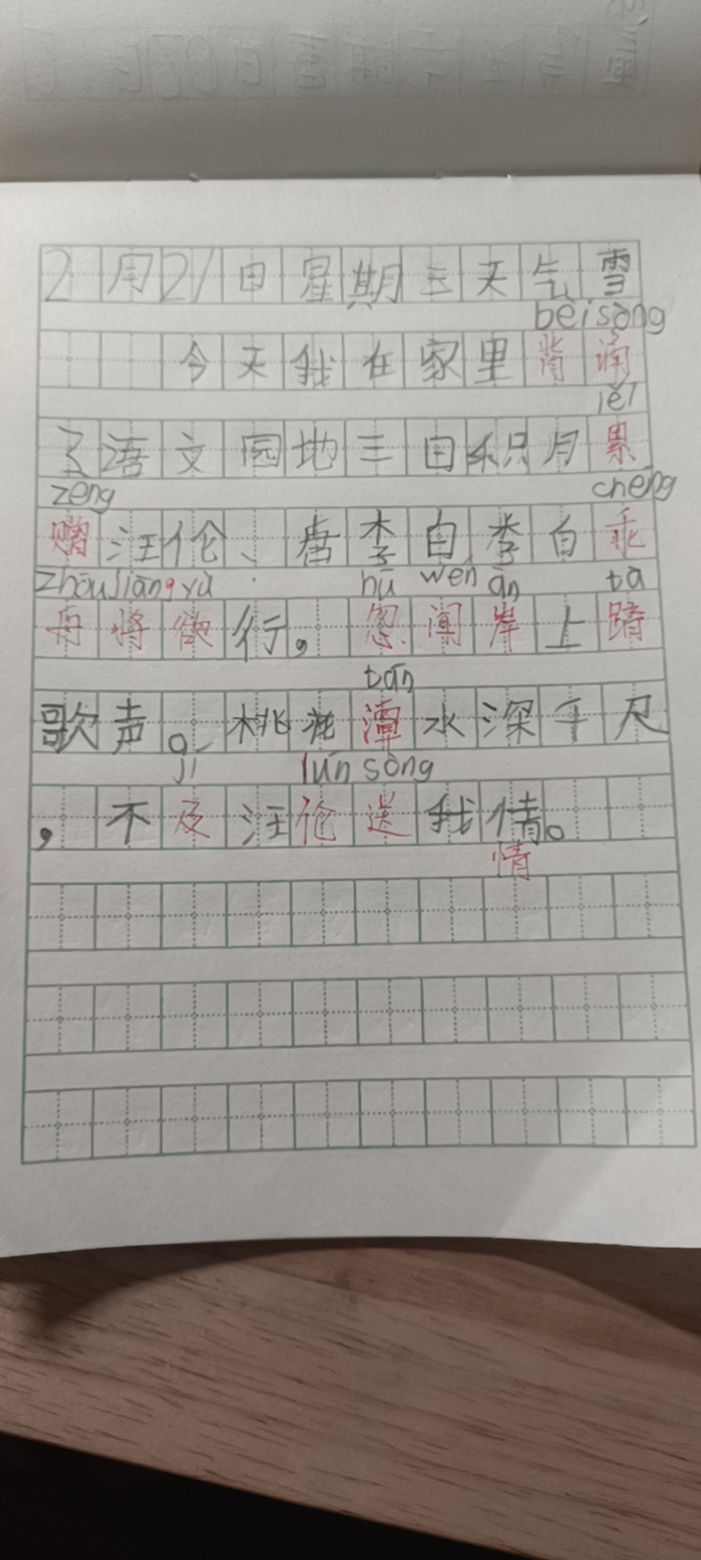 2月21日星期三天气雪
bei song
今天我在家里背诵
lěi
了语文园地三日积月累
zeng cheng
赠汪伦、唐李白,李白乘
zhōu jiāng yù hū wén àn tà
舟将欲行。忽闻岸上踏
tán
歌声。桃花潭水深千尺
jí lún sòng
,不及汪伦送我情。
情